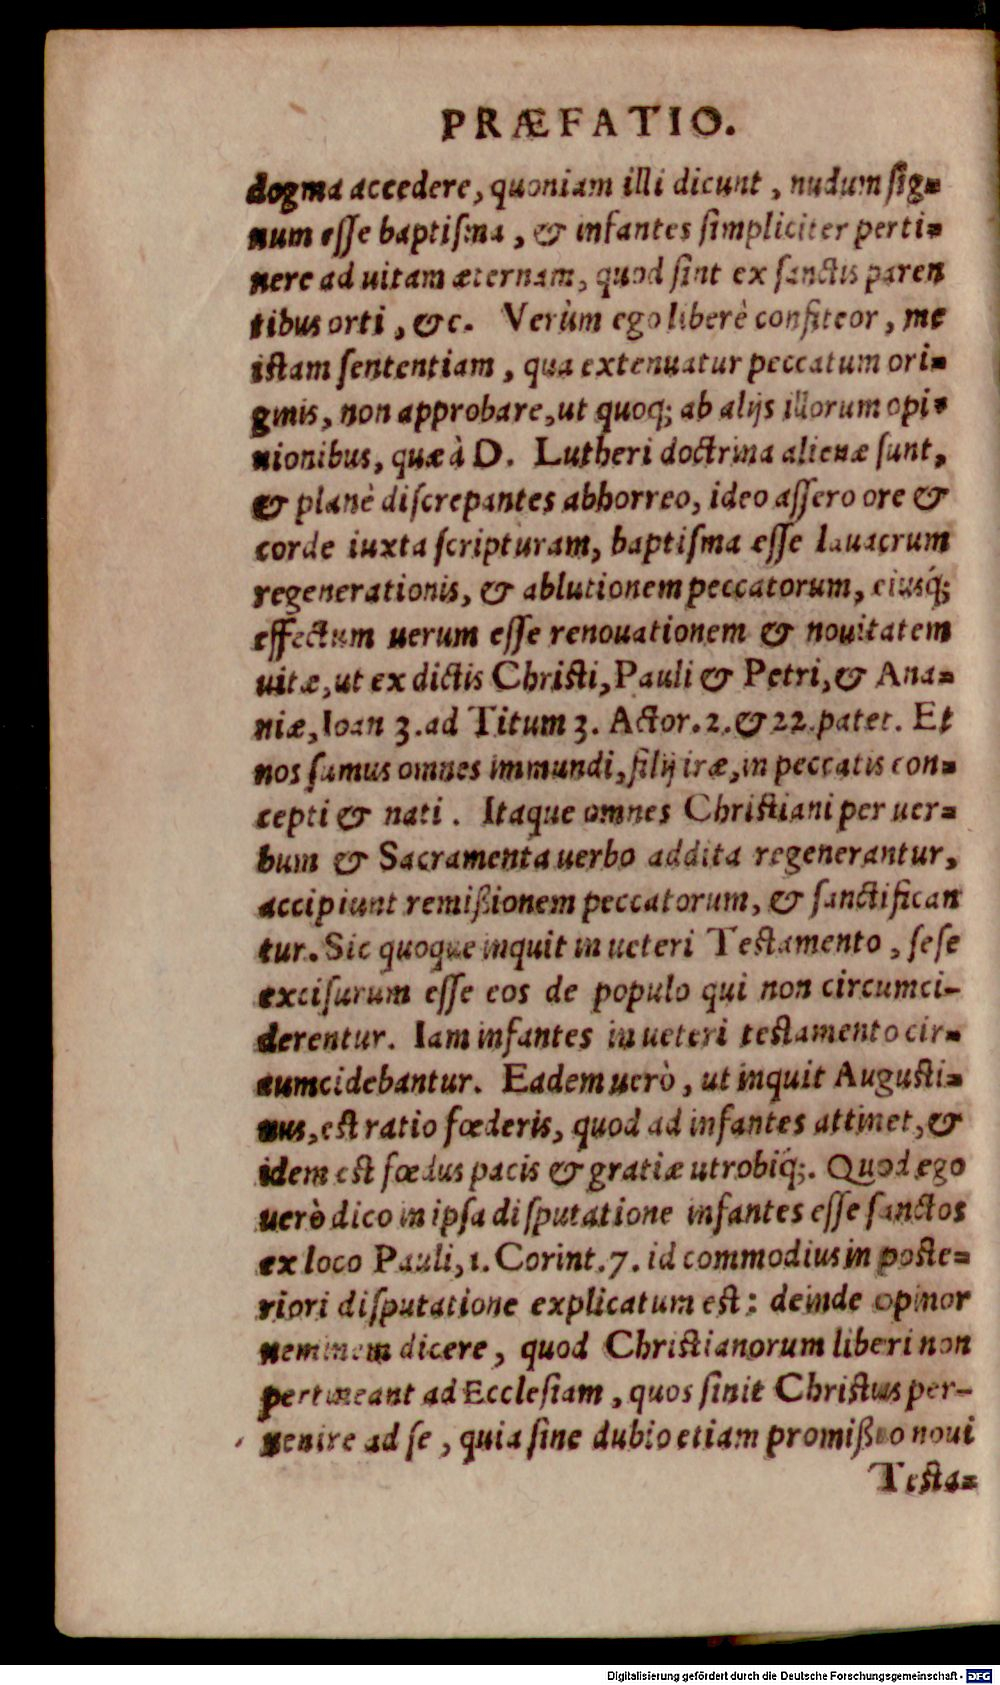 PRÆFATIO.
dogma accedere, quoniam illi dicunt, nudum ſig=
num eſſe baptiſma, & infantes ſimpliciter perti=
nere ad uitam æternam, quod ſint ex ſanctis paren
tibus orti, &c. Verùm ego liberè confiteor, me
istam ſententiam, qua extenuatur peccatum ori=
ginis, non approbare, ut quoq; ab alijs illorum opi=
nionibus, quæ à D. Lutheri doctrina alienæ ſunt,
& planè diſcrepantes abhorreo, ideo aſſero ore &
corde iuxta ſcripturam, baptiſma eſſe lauacrum
regenerationis, & ablutionem peccatorum, eiusq́;
effectum uerum eſſe renouationem & nouitatem
uitæ, ut ex dictis Christi, Pauli & Petri, & Ana=
niæ, Ioan 3. ad Titum 3. Actor. 2. & 22. patet. Et
nos ſumus omnes immundi, filij iræ, in peccatis con=
cepti & nati. Itaque omnes Christiani per uer=
bum & Sacramenta uerbo addita regenerantur,
accipiunt remißionem peccatorum, & ſanctifican
tur. Sic quoque inquit in ueteri Testamento, ſeſe
exciſurum eſſe eos de populo qui non circumci-
derentur. Iam infantes in ueteri testamento cir=
cumcidebantur. Eadem uerò, ut inquit Augusti=
nus, est ratio fœderis, quod ad infantes attinet, &
idem est fœdus pacis & gratiæ utrobiq́;. Quod ego
uerò dico in ipſa diſputatione infantes eſſe ſanctos
ex loco Pauli, 1. Corint. 7. id commodius in poste=
riori diſputatione explicatum est: deinde opinor
neminem dicere, quod Christianorum liberi non
pertineant ad Eccleſiam, quos ſinit Christus per-
uenire ad ſe, quia ſine dubio etiam promißio noui
Testa=
Digitalisierung gefördert durch die Deutsche Forschungsgemeinschaft - DFG